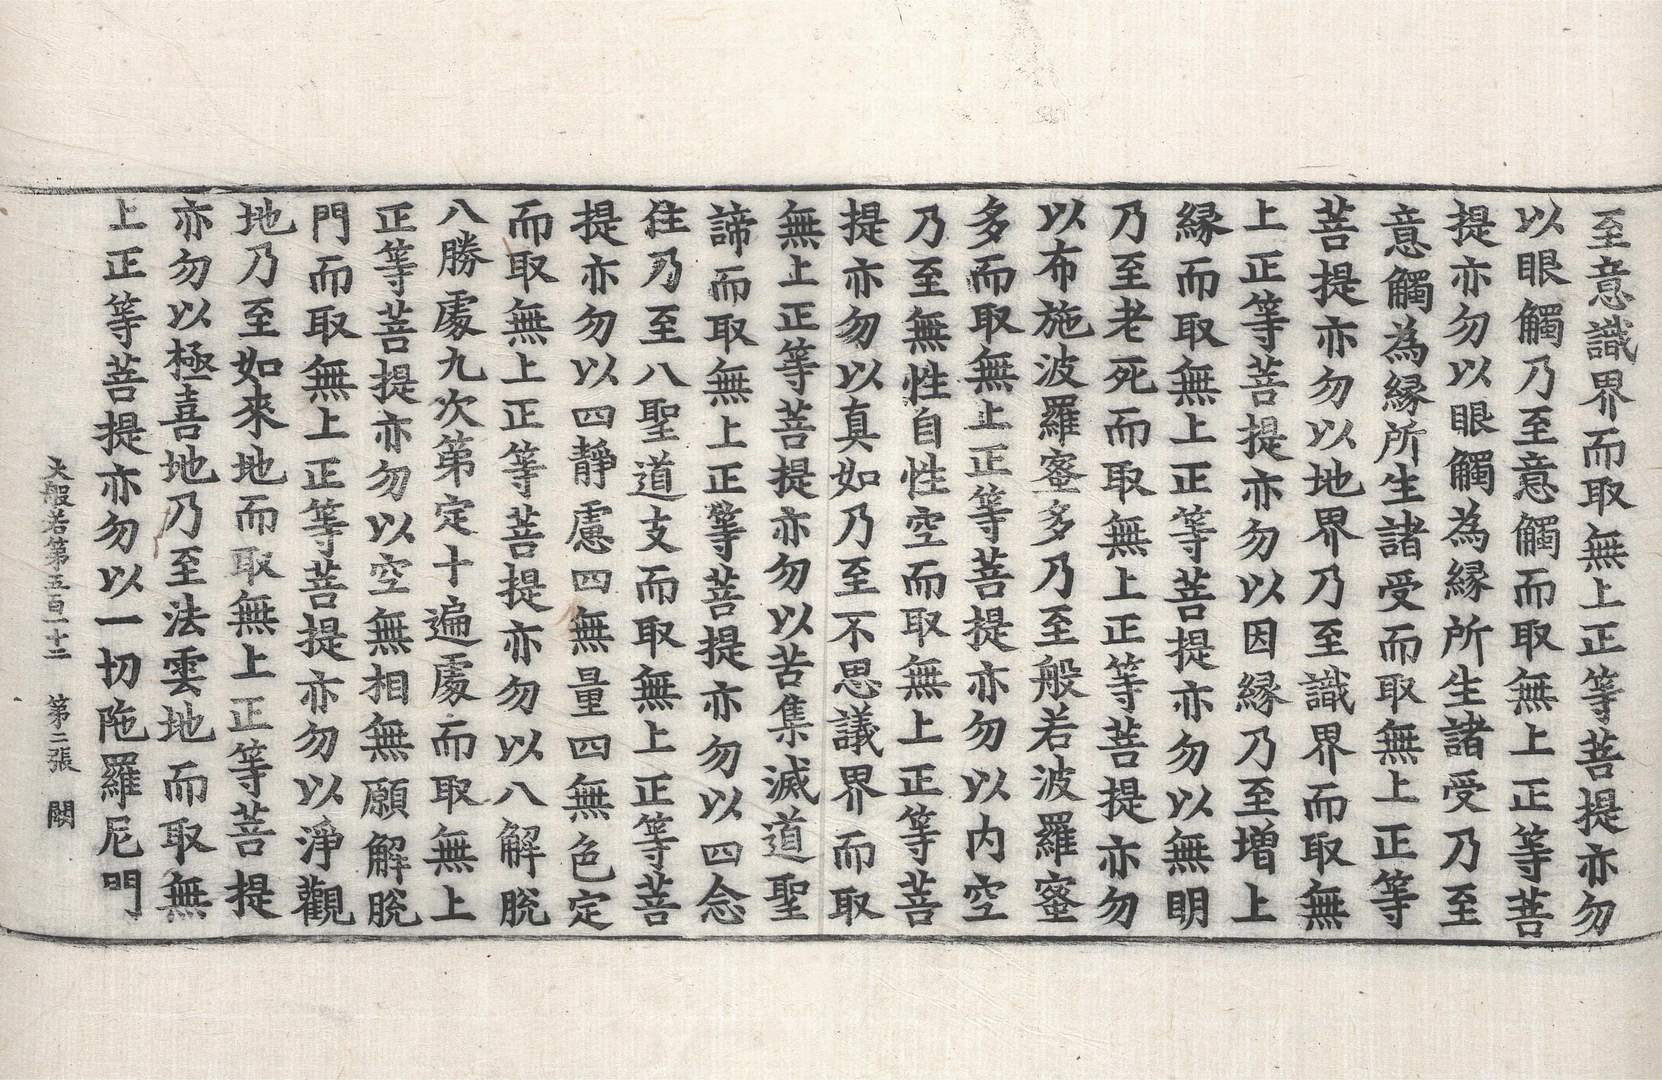 至意識界而取無上正等菩提亦勿
以眼觸乃至意觸而取無上正等菩
提亦勿以眼觸為縁所生諸受乃至
意觸為縁所生諸受而取無上正等
菩提亦勿以地界乃至識界而取無
上正等菩提亦勿以因縁乃至增上
縁而取無上正等菩提亦勿以無明
乃至老死而取無上正等菩提亦勿
以布施波羅蜜多乃至般若波羅蜜
多而取無上正等菩提亦勿以内空
乃至無性自性空而取無上正等菩
提亦勿以真如乃至不思議界而取
無上正等菩提亦勿以苦集滅道聖
諦而取無上正等菩提亦勿以四念
住乃至八聖道支而取無上正等菩
提亦勿以四靜慮四無量四無色定
而取無上正等菩提亦勿以八解脫
八勝處九次第定十遍處而取無上
正等菩提亦勿以空無相無願解脫
門而取無上正等菩提亦勿以淨觀
地乃至如來地而取無上正等菩提
亦勿以極喜地乃至法雲地而取無
上正等菩提亦勿以一切陁羅尼門
大般若第五百一十二 第二張 闕